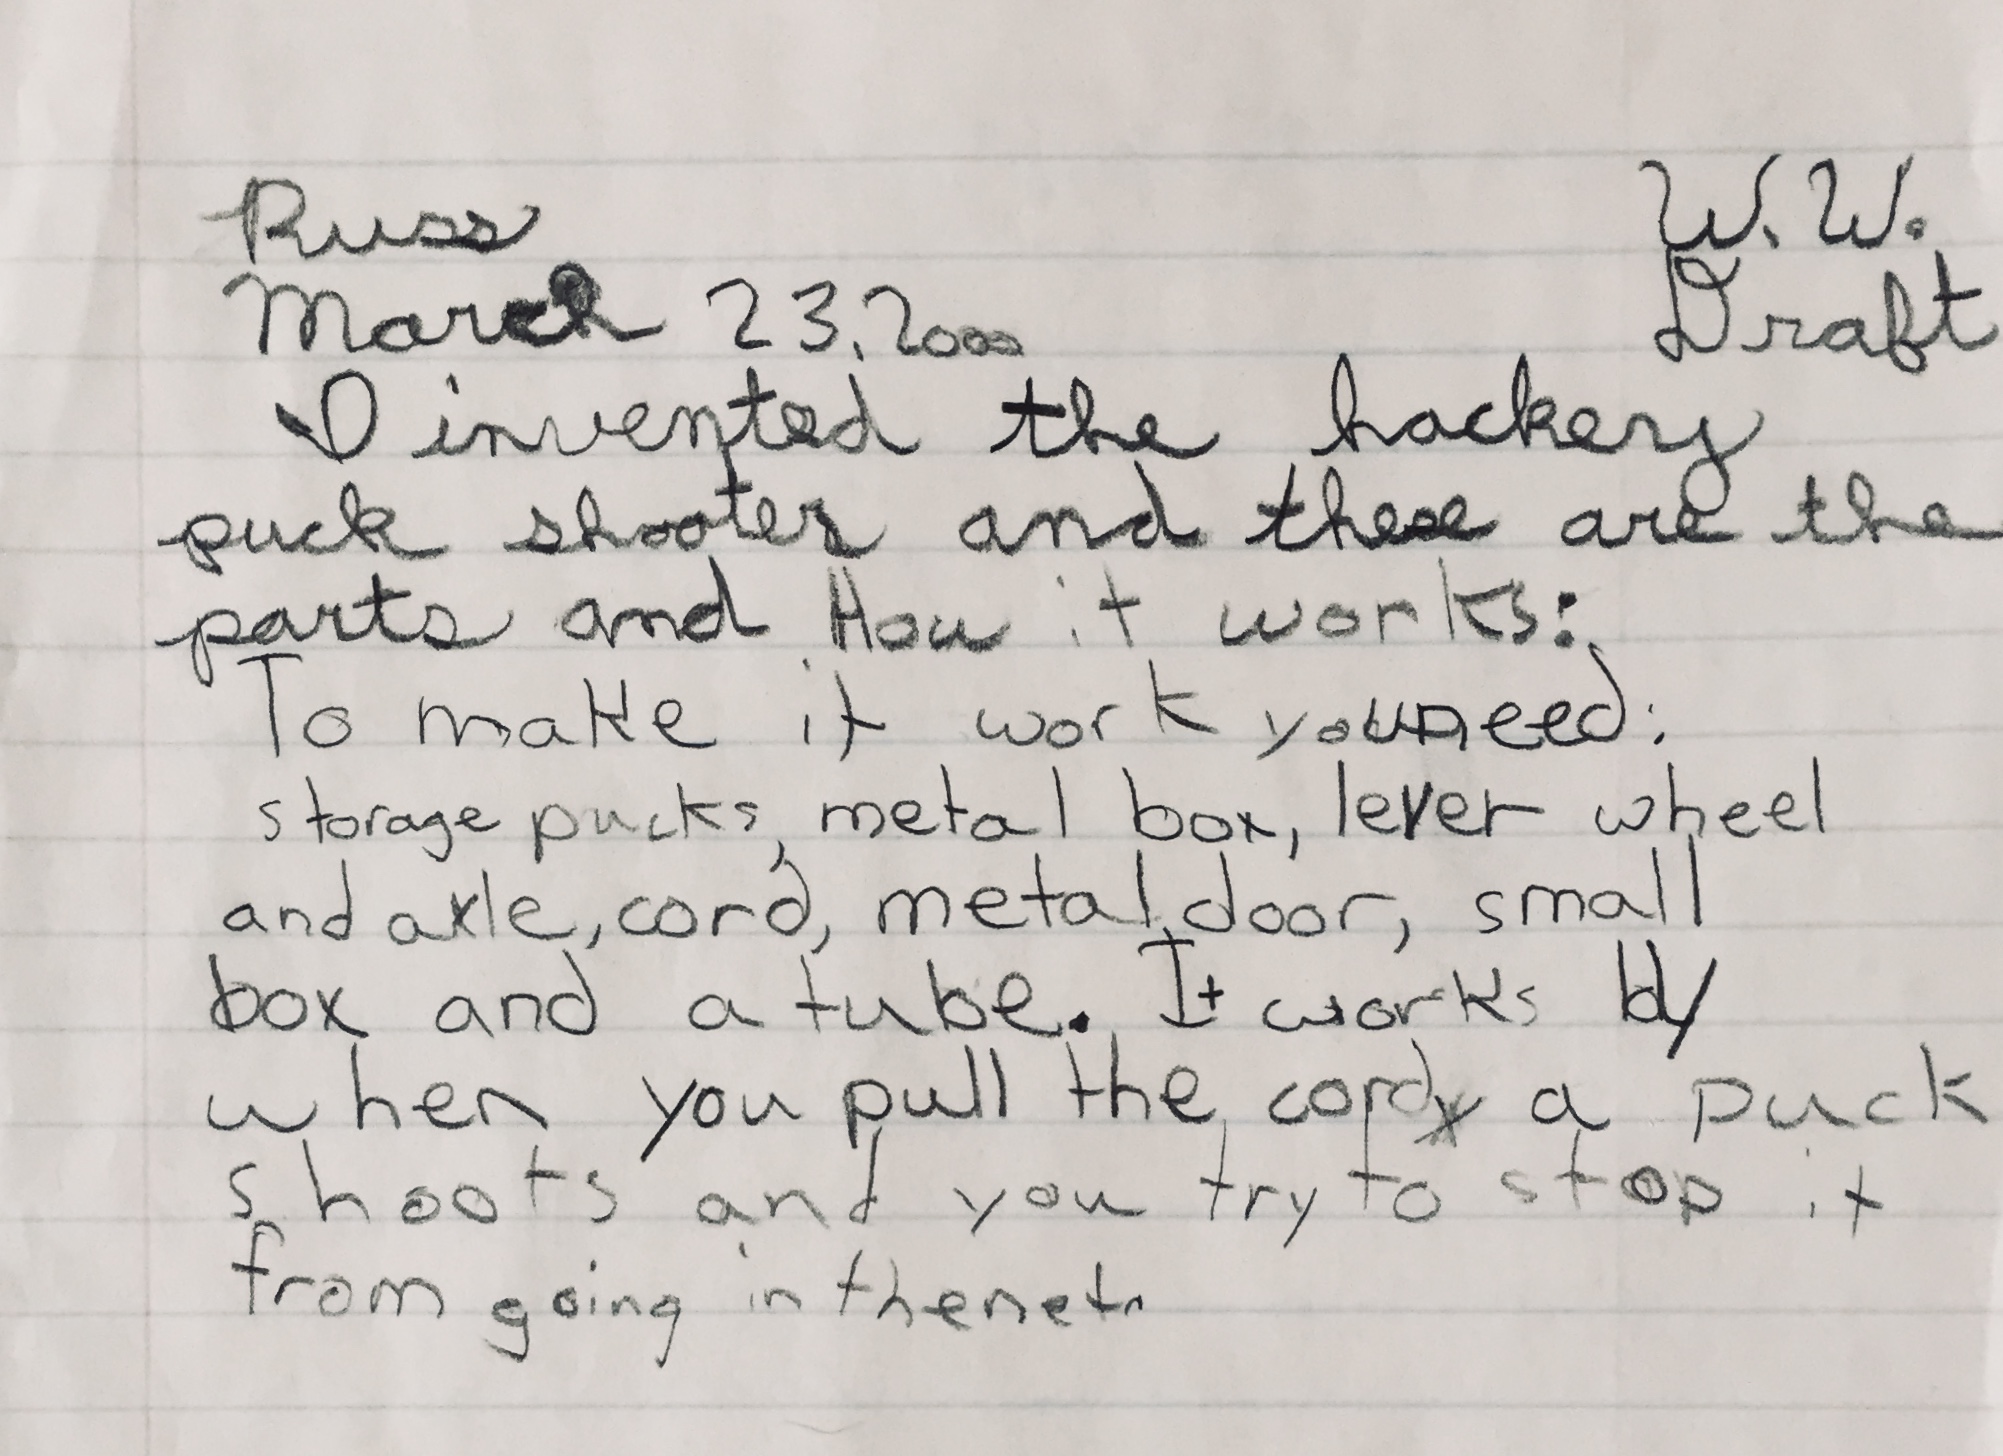 Russ W.W.
March 23, 2000 Draft
I invented the hockery
puck shooter and these are the
parts and How it works:
To make it work you need:
storage pucks, metal box, lever wheel
and axle, cord, metal door, small
box and a tube. It works by
when you pull the cord a puck
shoots and you try to stop it
from going in the net.